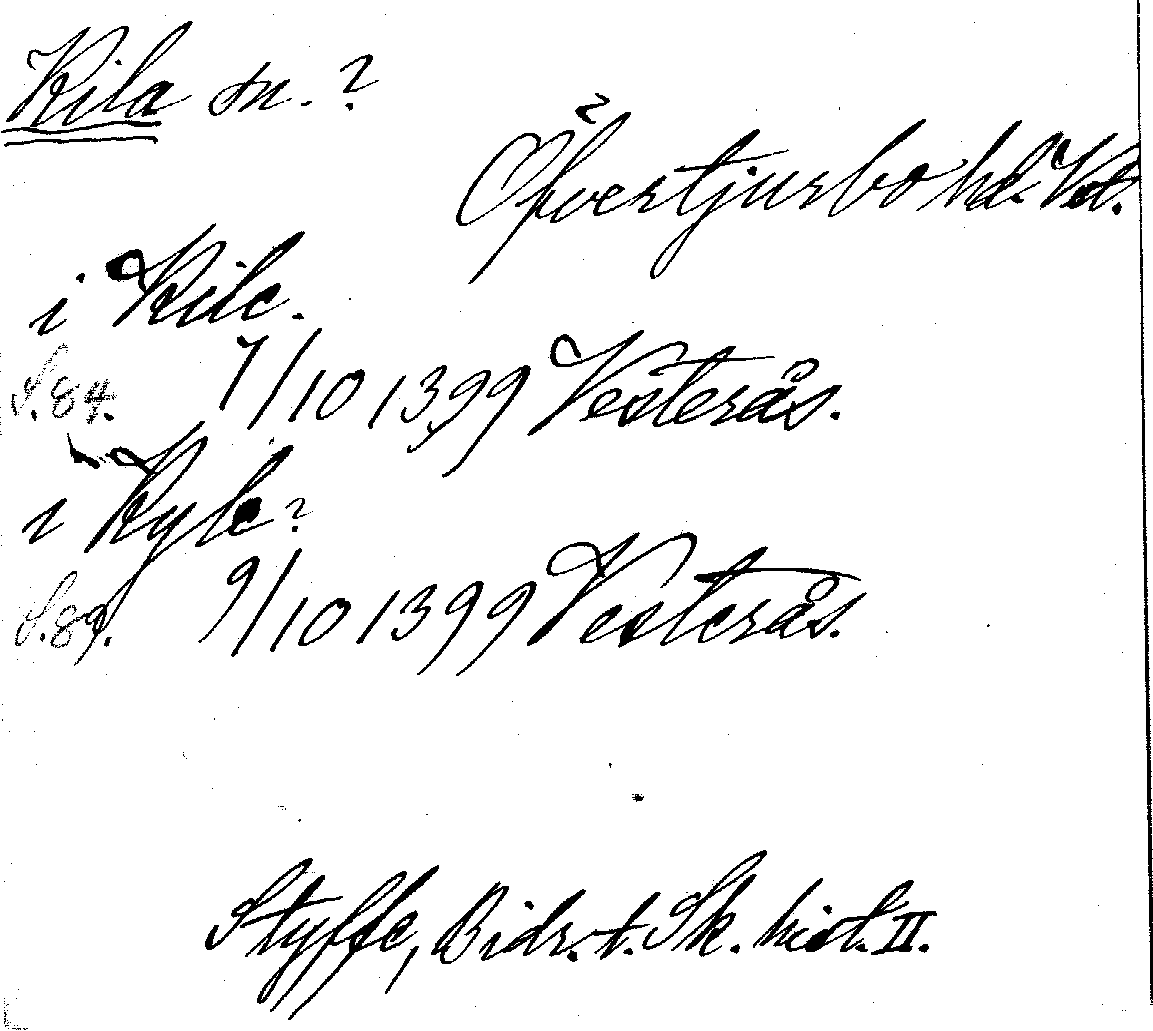 Kila sn. ?
Öfvertjurbo hd. Vst.
i Kile.
S. 84. 7/10 1399 Vesterås.
i Kyle?
S. 89. 9/10 1399 Vesterås.
Styffe, Bidr. t. Sk. hist. II.